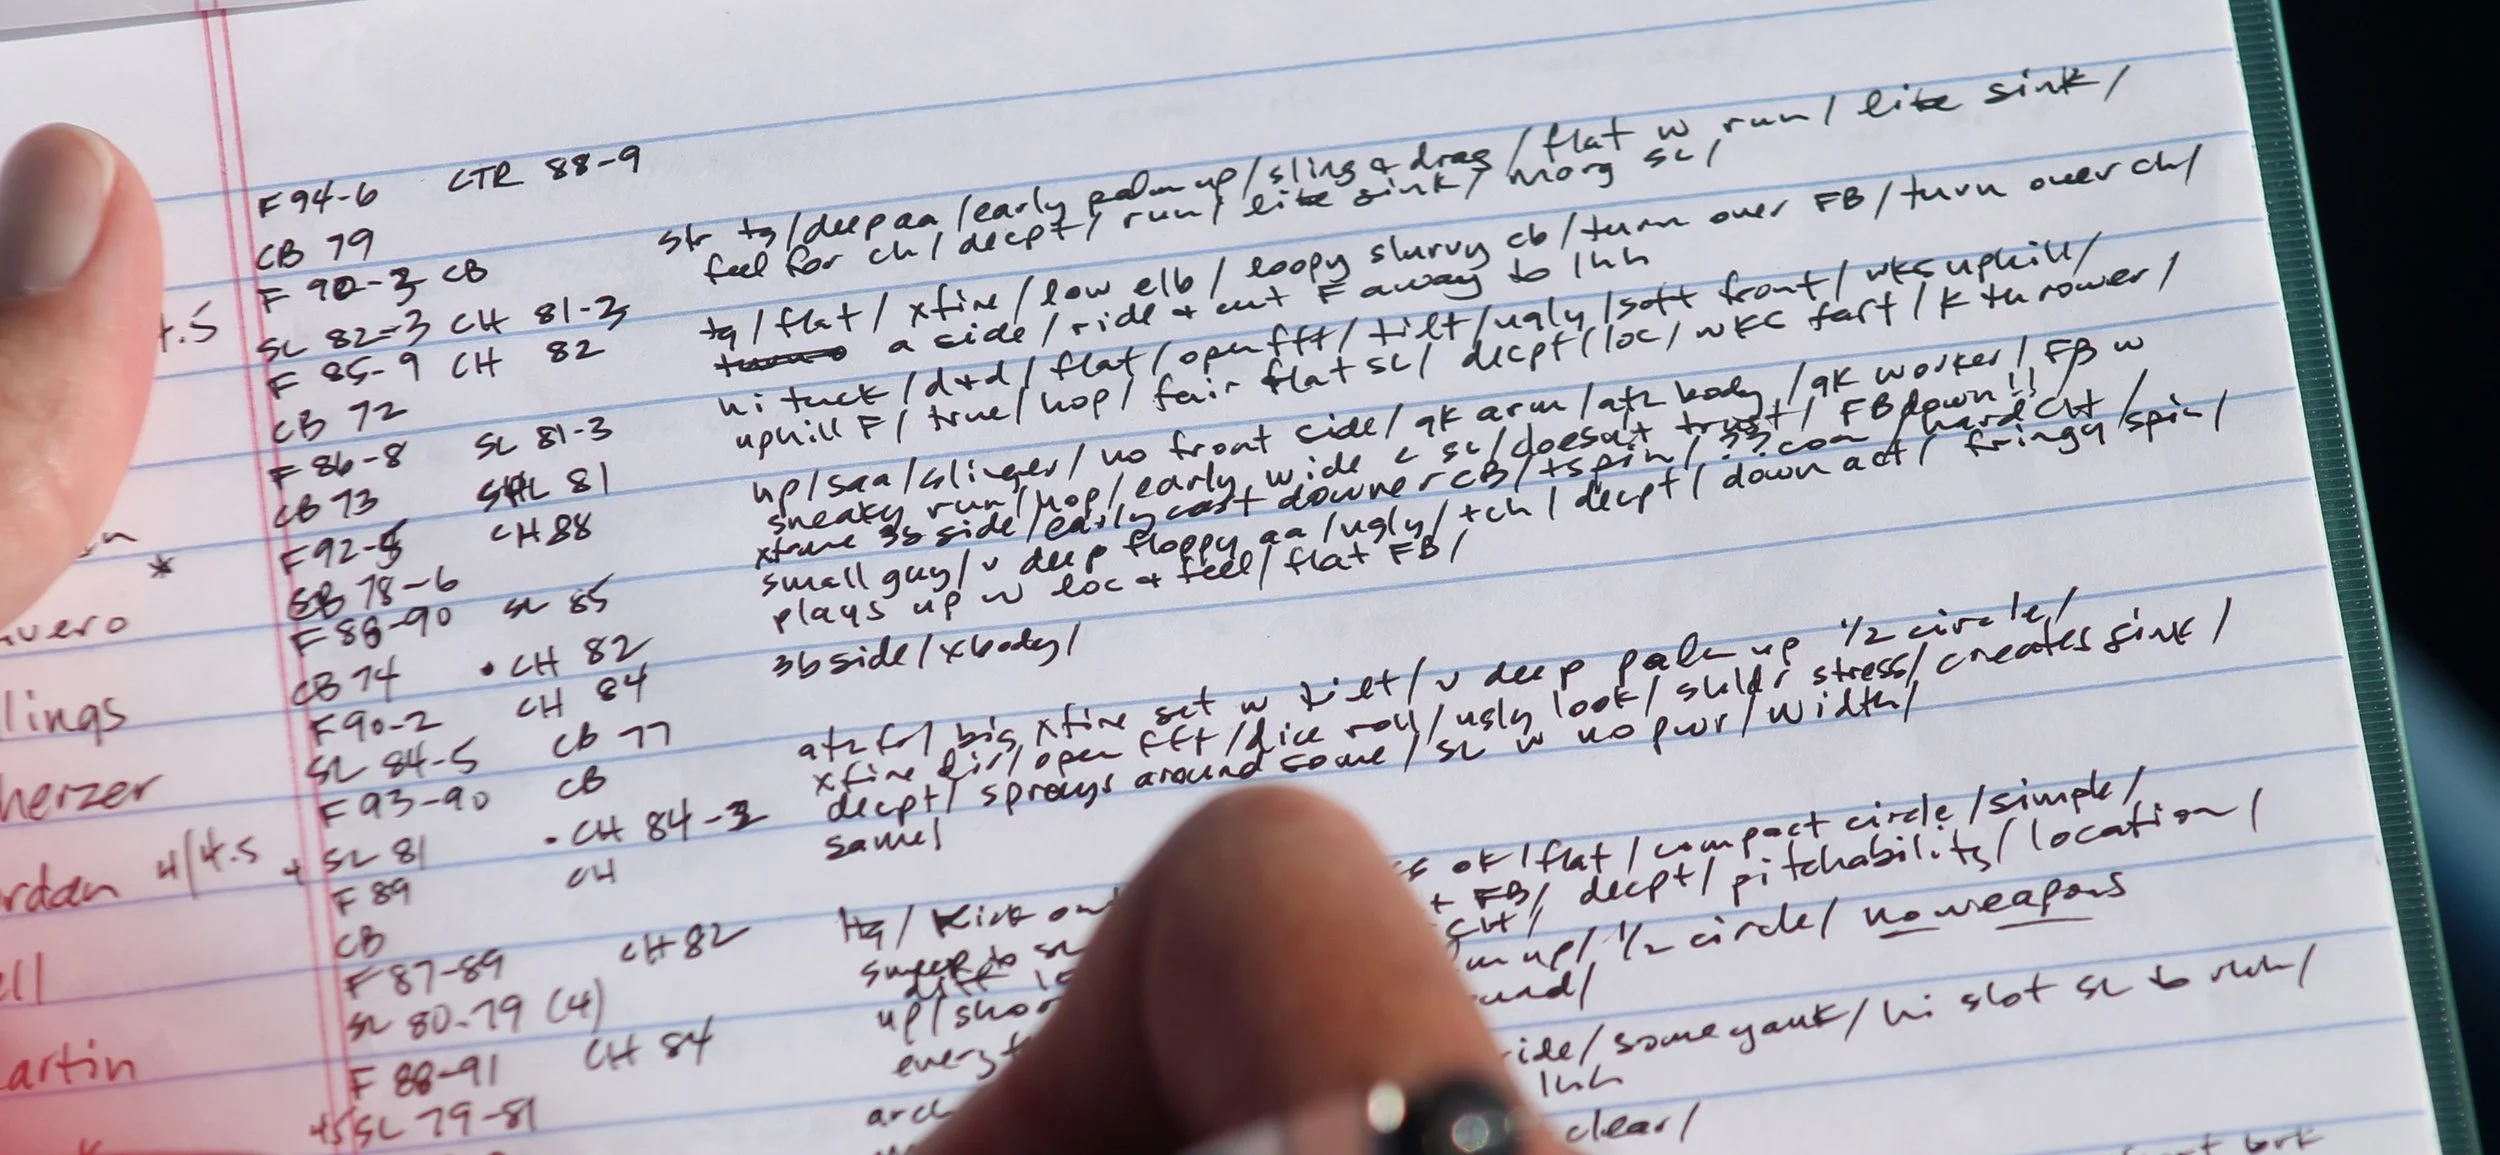 F 94-6 CTR 88-9
CB 79
str tq/deep aa/early palm up/sling & drag/flat w run/lite sink/
F 90-3 CB
feel for ch/decpt/run/lite sink/morg sl/
SL 82-3 CH 81-3
tq/flat/xfire/low elb/loopy slurvy cb/turn over FB/turn over ch/
4.5
F 85-9 CH 82
a side/ride & cut F away to lhh
CB 72
hi tuck/d+d/flat/open fft/tilt/ugly/soft front/wks uphill/
F 86-8 SL 81-3
uphill F/true/hop/fair flat sl/decpt/loc/wkc fart/k thrower/
CB 73 SL 81
up/saa/slinger/no front side/qk arm/atz body/qk worker/FB w
F 92-5 CH 88
sneaky run/hop/early wide c sl/doesn't trust/FB down!!
*
CB 78-6
xtreme 3b side/early cast downer CB/+spin/??con/hard CH/
F 88-90 SL 85
small guy/v deep floppy aa/ugly/+ch/decpt/down act/fringy spin/
uero
plays up w loc & feel/flat FB/
CB 74 • CH 82
3b side/xbody/
lings
F 90-2 CH 84
SL 84-5 CB 77
atz fr/big xfire set w tilt/v deep palm up 1/2 circle/
herzer
F 93-90 CB
xfire dir/open fft/dice roll/ugly look/shldr stress/creates sink/
+ SL 81 • CH 84-3
decpt/sprays around some/SL w no pwr/width/
rdan 4/4.5
F 89 CH
same/
CB
tq/Kick out ss ok/flat/compact circle/simple/
ll
F 87-89 CH 82
sweep to sl + FB/decpt/pitchability/location/
SL 80-79 (4)
diff CH/
artin
F 88-91 CH 84
up/shor m up/1/2 circle/no weapons
every und/
+5 SL 79-81
arc ide/some yank/hi slot SL to rhh/
lhh
clear/
brk